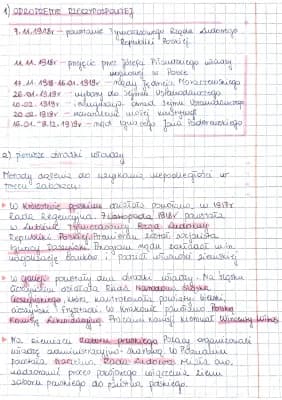 1) ODRODZENIE RZECZYPOSPOLITEJ
7.11.1918r - powstanie Tymczasowego Rządu Ludowego
Republiki Polskiej
11.11.1918r - przejęcie przez Józefa Piłsudskiego władzy
wojskowej w Polsce
17.11.1918-16.01.1919r - rządy Jędrzeja Moraczewskiego
26.01.1919r - wybory do Sejmu Ustawodawczego
10.02.1919r - inauguracja obrad Sejmu Ustawodawczego
20.02.1919r - uchwalenie małej konstytucji
16.01.-9.12.1919r - rząd Ignacego Jana Paderewskiego
2) pierwsze ośrodki władzy
Metody dążenia do uzyskania niepodległości w
trzech zaborach:
W Królestwie Polskim działała powołana w 1917r
Rada Regencyjna. 7 listopada 1918r powstał
w Lublinie Tymczasowy Rząd Ludowy
Republiki Polskiej. Premierem został socjalista
Ignacy Daszyński. Program rządu zakładał m.in.
banków i własności ziemskiej
W Galicji powstały dwa ośrodki władzy. Na Śląsku
Cieszyńskim działała Rada Narodowa Śląska
Cieszyńskiego, która kontrolowała powiaty bielski,
cieszyński i frysztacki. W Krakowie powołano Polską
Komisję Likwidacyjną. Pracami komisji kierował Wincenty Witos
Na ziemiach zaboru pruskiego Polacy organizowali
władzę administracyjno- W Poznaniu
powstała Naczelna Rada Ludowa. Miała ona
nadzorować proces włączenia ziem
zaboru pruskiego do państwa polskiego.